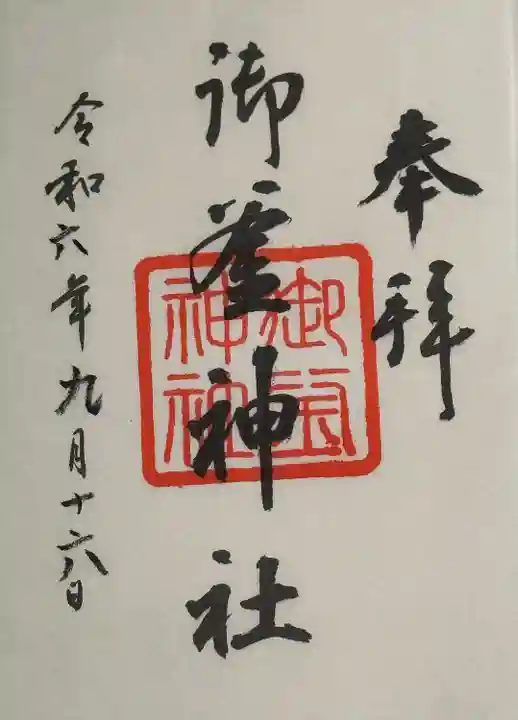 奉拝
御釜神社
御釜神社
令和六年九月十六日